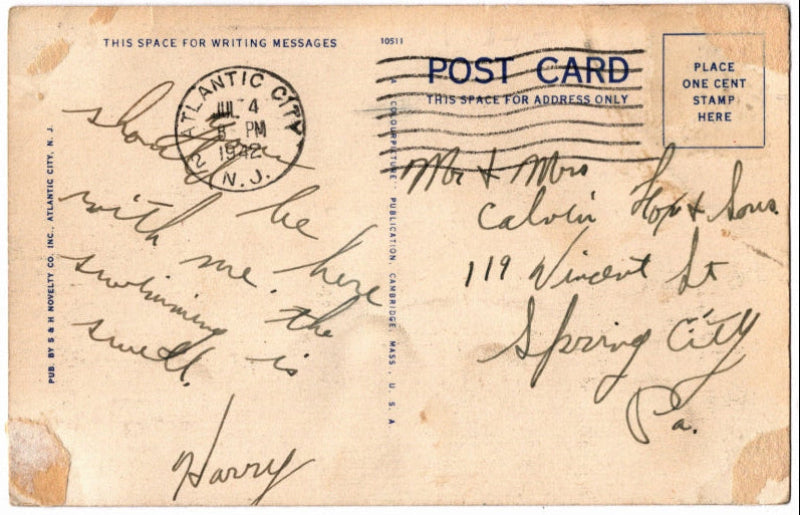 THIS SPACE FOR WRITING MESSAGES
10511
POST CARD
THIS SPACE FOR ADDRESS ONLY
PLACE
ONE CENT
STAMP
HERE
ATLANTIC CITY
JUL 4
PM
1942
N.J.
2
should
be
with me. here
swimming the
swell. is
Harry
Mr & Mrs
Calvin Hop & Sons.
119 Vincent St
Spring City
Pa.
PUB. BY S & H NOVELTY CO. INC., ATLANTIC CITY, N. J.
A "COLOURPICTURE" PUBLICATION, CAMBRIDGE, MASS., U. S. A.